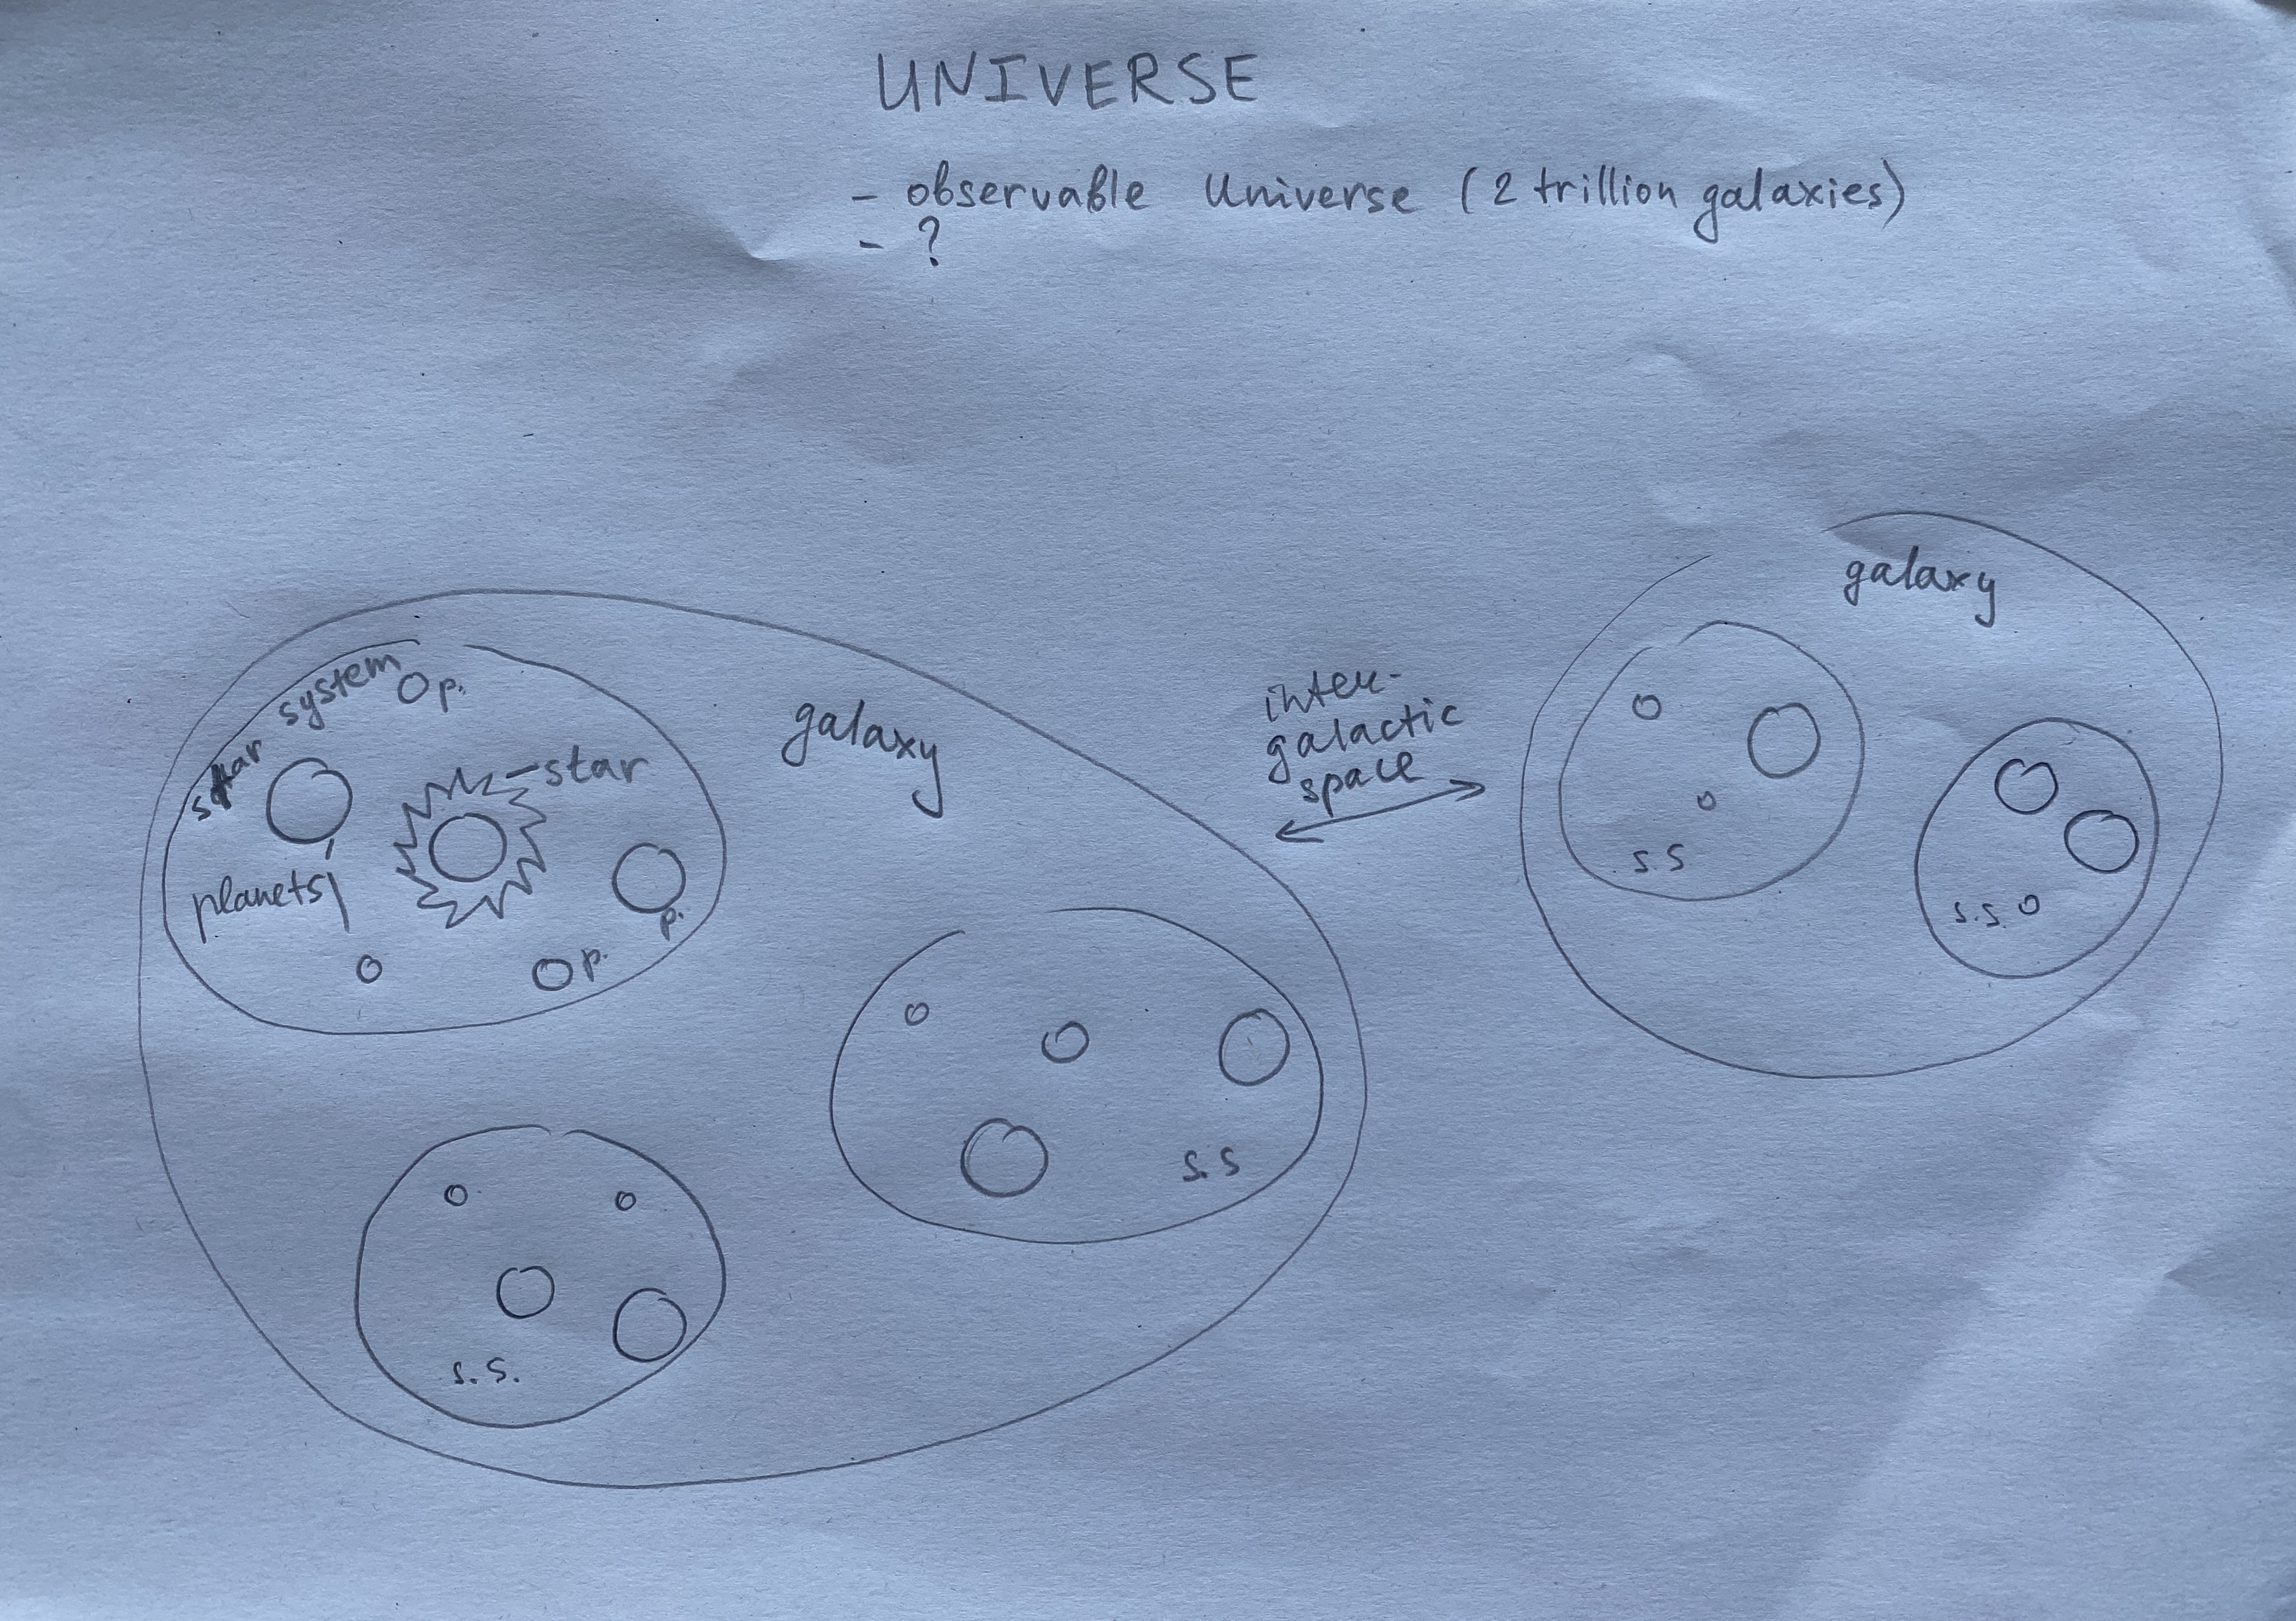 UNIVERSE
- observable Universe (2 trillion galaxies)
- ?
galaxy
star system
p.
star
planets
p.
p.
galaxy
inter-
galactic
space
s.s
s.s.
s.s
s.s.